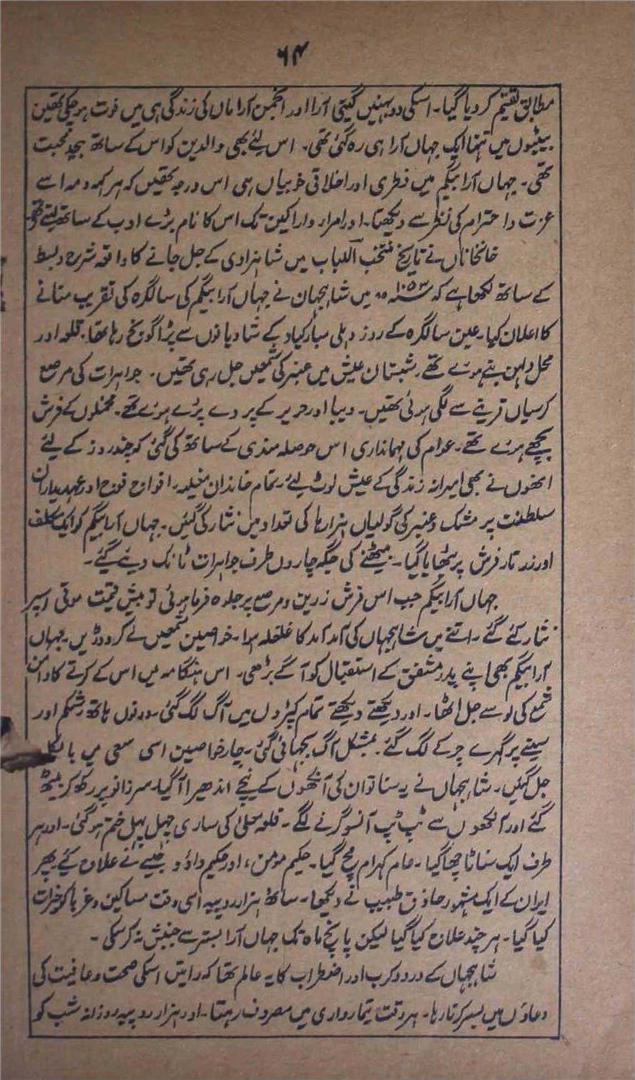 ۶۴
مطابق تقسیم کر دیا گیا۔ اسکی دو بہنیں گیتی آرا اور انجمن آرا ماں کی زندگی ہی میں فوت ہو چکی تھین
بیٹیوں میں تنہا ایک جہاں آرا ہی رہ گئی تھی۔ اس لئے بھی والدین کو اس کے ساتھ بیحد محبت
تھی۔ جہاں آرا بیگم میں فطری اور اخلاقی خوبیاں ہی اس درجہ تھیں کہ ہر کہ و مہ اسے
عزت و احترام کی نظر سے دیکھتا۔ اور امرار و اراکین تک اس کا نام بڑے ادب کے ساتھ لیتے تھے
خانخاناں نے تاریخ منتخب اللباب میں شاہزادی کے جل جانے کا واقعہ شرح و بسط
کے ساتھ لکھا ہے کہ ۱۰۵۳ھ میں شاہجہان نے جہاں آرا بیگم کی سالگرہ کی تقریب منانے
کا اعلان کیا۔ عین سالگرہ کے روز دہلی مبارکباد کے شادیانوں سے پڑا گونج رہا تھا۔ قلعہ اور
محل دلہن بنے ہوئے تھے۔ شبستان عیش میں عنبر کی شمعیں جل رہی تھیں۔ جواہرات کی مرصع
کرسیاں قرینے سے لگی ہوئی تھیں۔ دیبا اور حریر کے پردے پڑے ہوئے تھے۔ مخملوں کے فرش
بچھے ہوئے تھے۔ عوام کی مہمانداری اس حوصلہ مندی کے ساتھ کی گئی کہ چند روز کے لئے
انھوں نے بھی امیرانہ زندگی کے عیش لوٹ لئے۔ تمام خاندان مغلیہ۔ افواج فوج اور عہدیداران
سلطنت پر مشک و عنبر کی گولیاں ہزارہا کی تعداد میں نثار کی گئیں۔ جہاں آرا بیگم کو ایک پر تکلف
اور زرتار فرش پر بٹھایا گیا۔ بیٹھنے کی جگہ چاروں طرف جواہرات ٹانک دیئے گئے۔
جہاں آرا بیگم جب اس فرش زرین و مرصع پر جلوہ فرما ہوئی تو بیش قیمت موتی اسپر
نثار کئے گئے۔ اتنے میں شاہجہاں کی آمد آمد کا غلغلہ ہوا۔ خواصین شمعیں لے کر دوڑیں۔ جہاں
آرا بیگم بھی اپنے پدر مشفق کے استقبال کو آگے بڑھی۔ اس ہنگامہ میں اس کے کرتے کا دامن
شمع کی لو سے جل اٹھا۔ اور دیکھتے دیکھتے تمام کپڑوں میں آگ لگ گئی۔ دونوں ہاتھ شکم اور
سینے پر گہرے چرکے لگ گئے۔ بمشکل آگ بجھائی گئی۔ چار خواصین اسی سعی میں بالکل
جل گئیں۔ شاہجہاں نے یہ سنا تو ان کی آنکھوں کے نیچے اندھیرا آ گیا۔ سر زانو پر رکھ کر بیٹھ
گئے اور آنکھوں سے ٹپ ٹپ آنسو گرنے لگے۔ قلعہ معلیٰ کی ساری چہل پہل ختم ہو گئی۔ اور ہر
طرف ایک سناٹا چھا گیا۔ عام کہرام مچ گیا۔ حکیم مومن، اور حکیم داؤد جیسے نے علاج کئے پھر
ایران کے ایک مشہور حاذق طبیب نے دیکھا۔ ساٹھ ہزار روپیہ اسی وقت مساکین و غربا کو خیرات
کیا گیا۔ ہر چند علاج کیا گیا لیکن پانچ ماہ تک جہاں آرا بستر سے جنبش نہ کر سکی۔
شاہجہاں کے درد و کرب اور اضطراب کا یہ عالم تھا کہ راتیں اسکی صحت و عافیت کی
دعاؤں میں بسر کرتا رہا۔ ہر وقت تیمارداری میں مصروف رہتا۔ اور ہزار روپیہ روزانہ شب کو